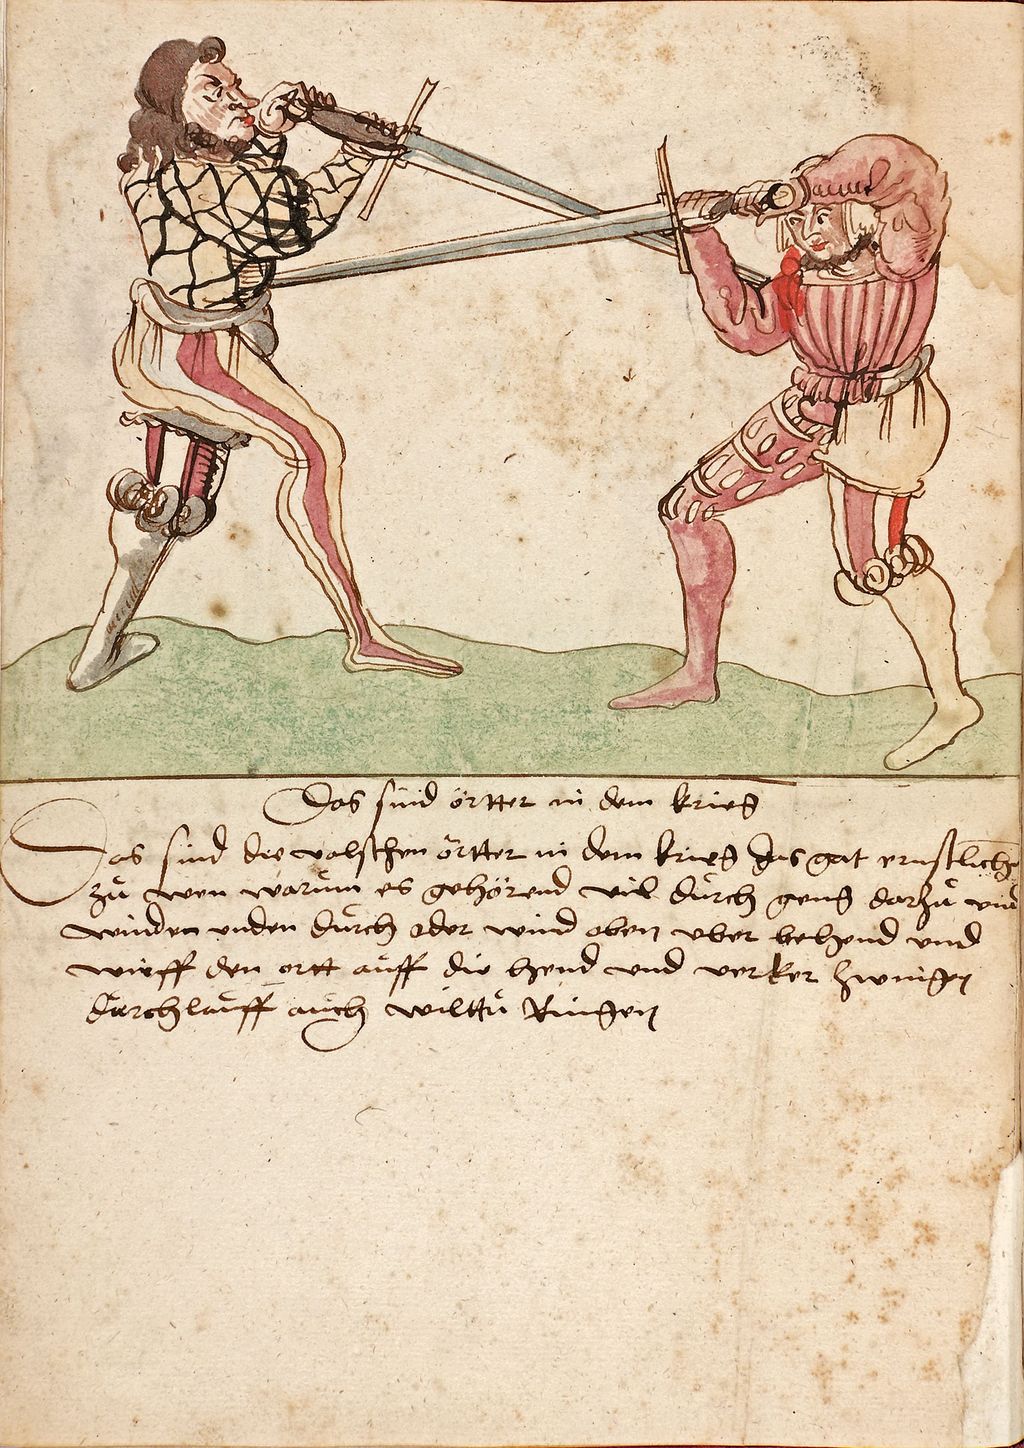 Das sind örtter in dem krieg
Das sind die valschen örtter in dem krieg das gat ernstlich
zů wen warum es gehörend vil durch geng darzů und
winden unden durch oder wind oben uber behend und
wirff den ortt auff die hend und verker zwingen
durchlauff auch wilttu Ringen